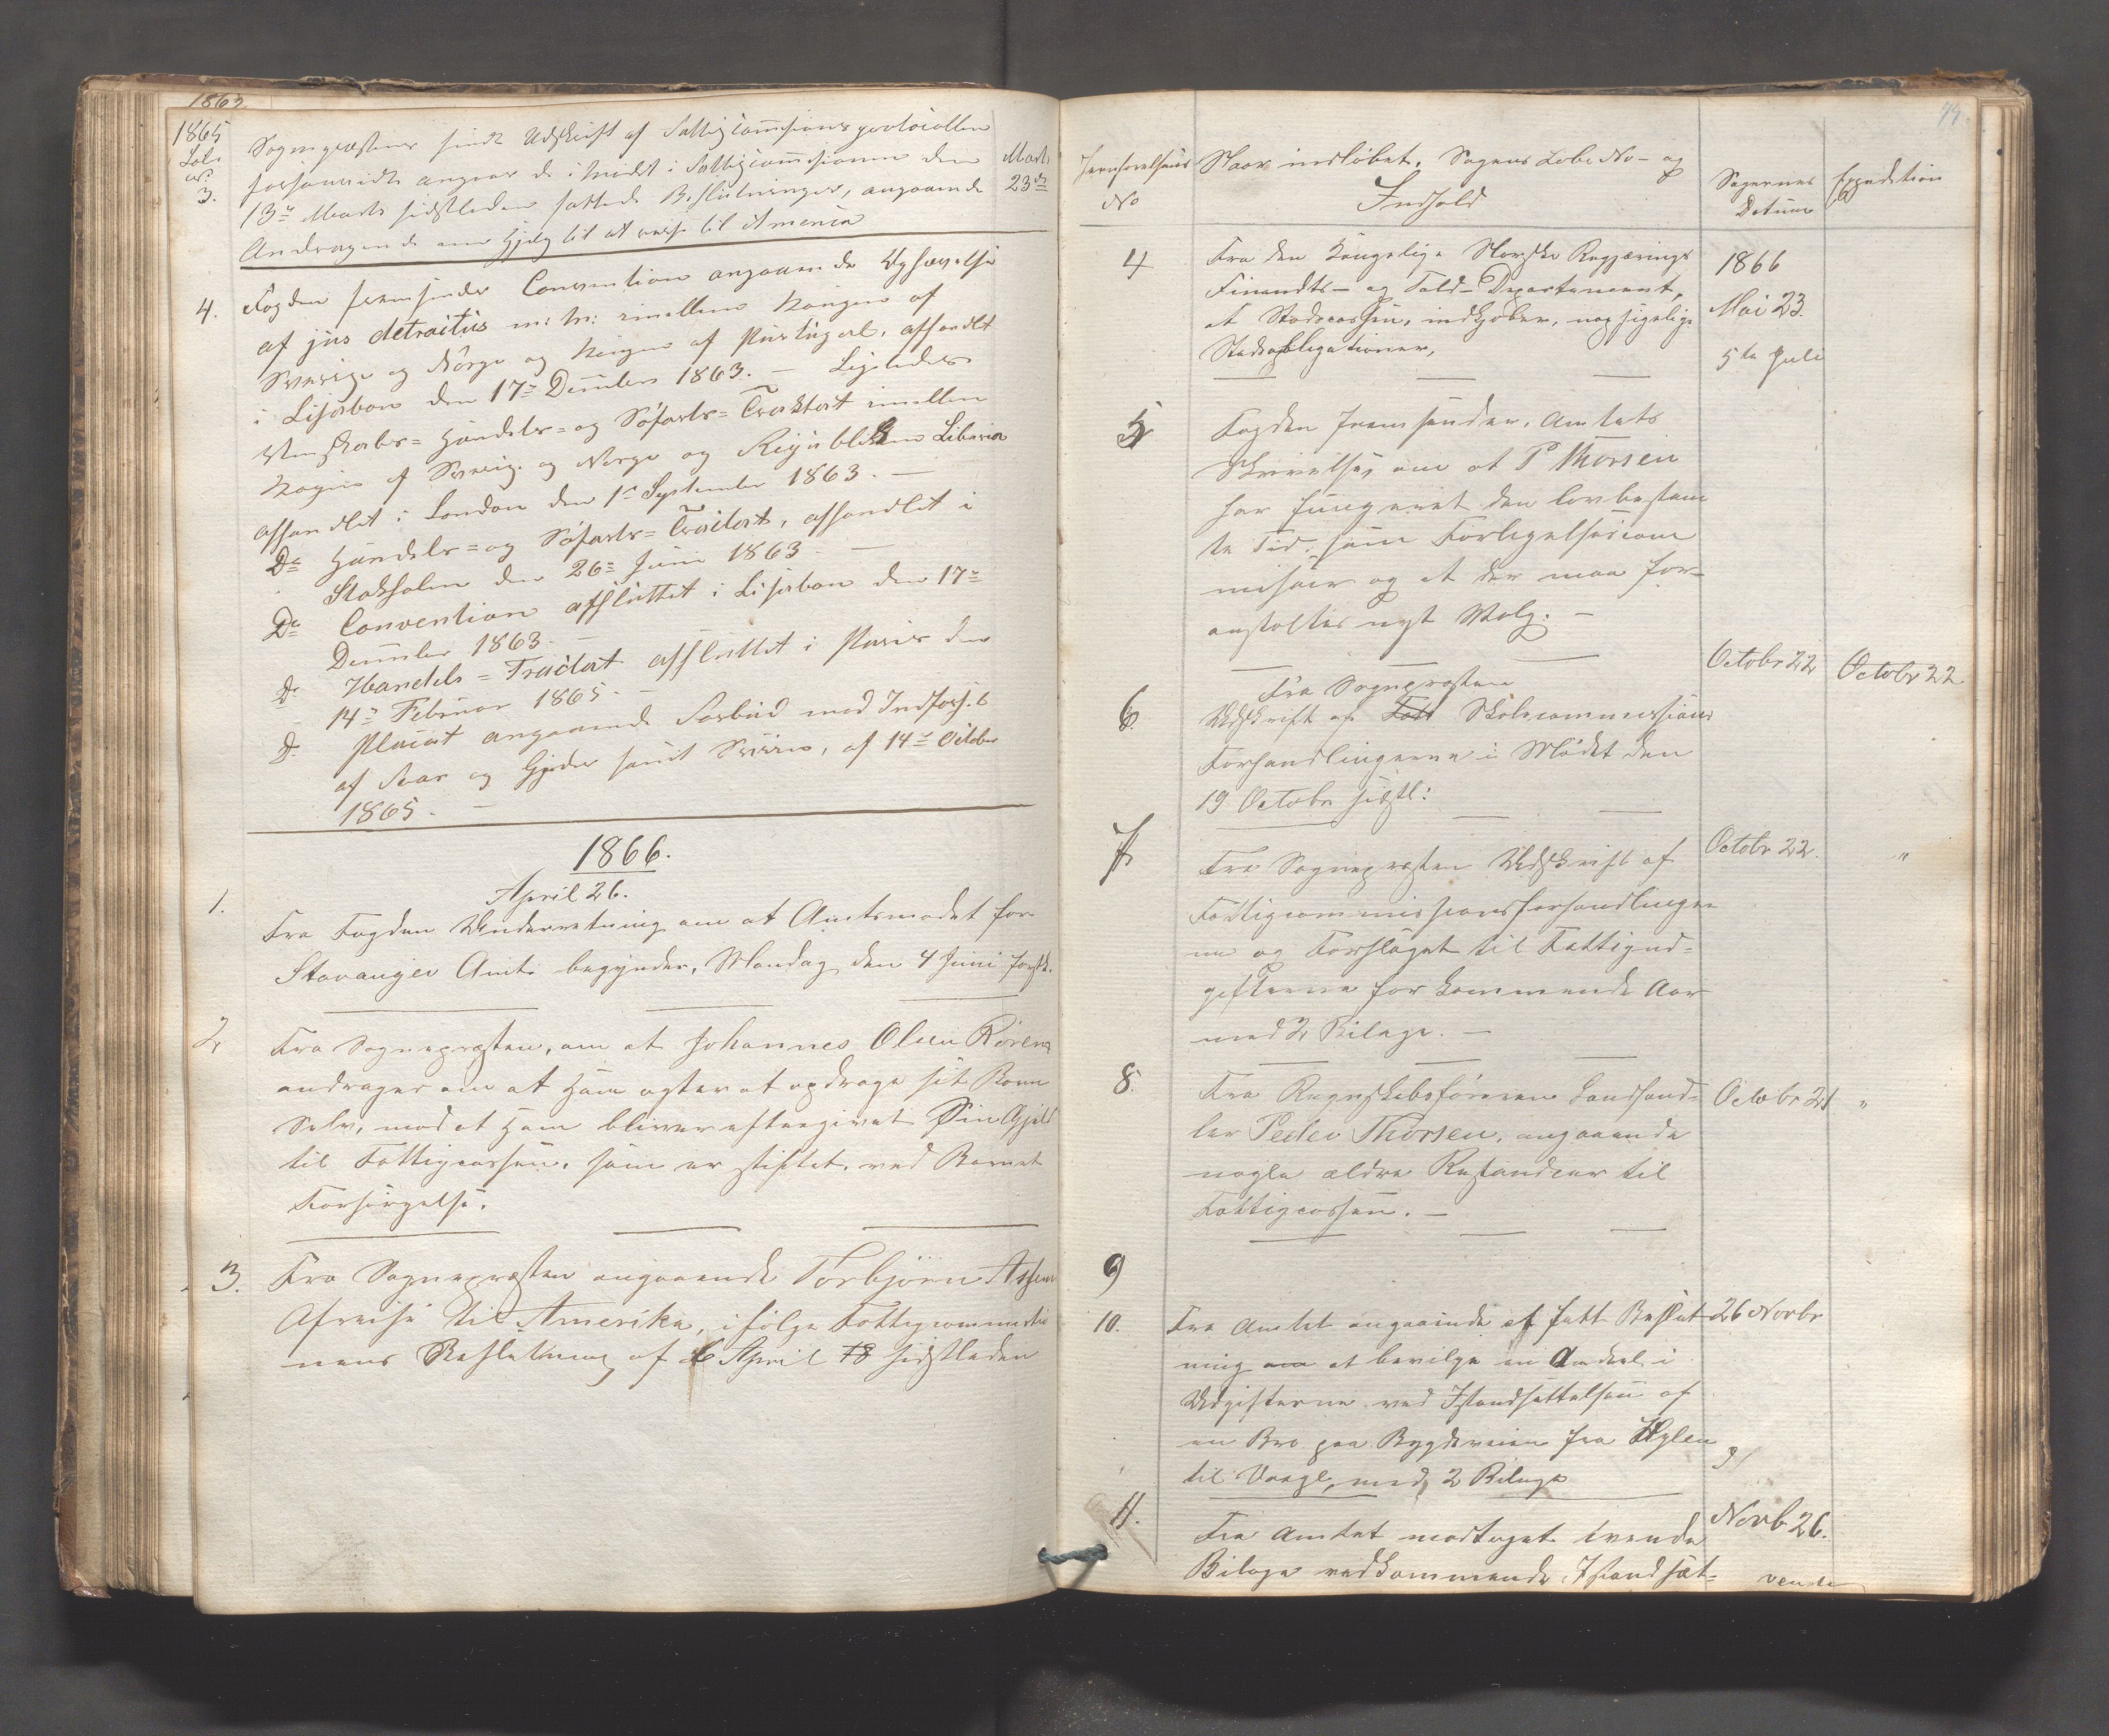 1863
1865
Løbe
No
3.
Sognepræsten sendt Udskrift af Fattigcommissionsprotocollen
forsaavidt angaar de i Mødet i Fattigcommissionen den
13de Marts sidstleden fattede Beslutninger, angaaende
Andragende om Hjælp til at reise til America
Marts
23de
4. Fogden fremsender Convention angaaende Ophævelse
af jus detractus m: v: imellem Kongen af
Sverige og Norge og Kongen af Portugal, afhandlet
i Lissabon den 17de December 1863. — Ligeledes
Venskabs= Handels= og Søfarts= Traktat imellem
Kongen af Sverig og Norge og Republikken Liberia
afhandlet i London den 1ste September 1863. —
Do Handels= og Søfarts= Tractat, afhandlet i
Stokholm den 26de Juni 1863. —
Do Convention afsluttet i Lissabon den 17de
December 1863. —
Do Handels= Tractat afsluttet i Paris den
14de Februar 1865. —
Do Placat angaaende Forbud mod Indførsel
af Faar og Gjeder samt Sviin, af 14de October
1865. —
1866.
April 26.
1. Fra Fogden Underretning om at Amtsmødet for
Stavanger Amt begynder, Mandag den 4 Juni førstk.
2 Fra Sognepræsten, om at Johannes Olsen
andrager om at Ham agter at opdrage sit Barn
Selv, mod at Ham bliver eftergivet Sin Gjeld
til Fattigcassen, som er stiftet ved Barnets
Forsørgelse.
3. Fra Sognepræsten angaaende Torbjørn
Afreise til Amerika, ifølge Fattigcommissio
nens Beslutning af 6 April 18 sidstleden
74
Jevnførelses
No
Naar indløbet, Sagens Løbe No — og
Indhold
Sagernes
Datum
Expedition
4 Fra den Kongelige Norske Regjerings
Finandts— og Told— Departement,
at Stadscassen, indkjøber, nogsigelige
Statsobligationer,
1866
Mai 23.
5te Juli
5 Fogden fremsender, Amtets
Skrivelse, om at P Thorsen
har fungeret den lovbestem
te Tid, som Forligelsescom
missær og at der maa for=
anstaltes nyt Valg. —
6. Fra Sognepræsten
Udskrift af Fatt Skolecommissions
Forhandlingerne i Mødet den
19 Octobr sidstl:
Octobr 22
Octobr 22
7 Fra Sognepræsten Udskrift af
Fattigcommissionsforhandlinger
ne og Forslaget til Fattigud=
gifterne for kommende Aar
med 2 Bilage. —
Octobr 22.
"
8. Fra Regnskabsføreren Landhand=
ler Peder Thorsen, angaaende
nogle ældre Restandser til
Fattigcassen. —
Octobr 21
"
9
10. Fra Amtet angaaende at fatt Beslut
ning om at bevilge en Andeel i
Udgifterne ved Istandsættelsen af
en Bro paa Bygdeveien fra Hylen
til Vaage, med 2 Bilage
26 Novbr
11. Fra Amtet modtaget tvende
Bilage vedkommende Istandsæt=
Novb 26.
vende